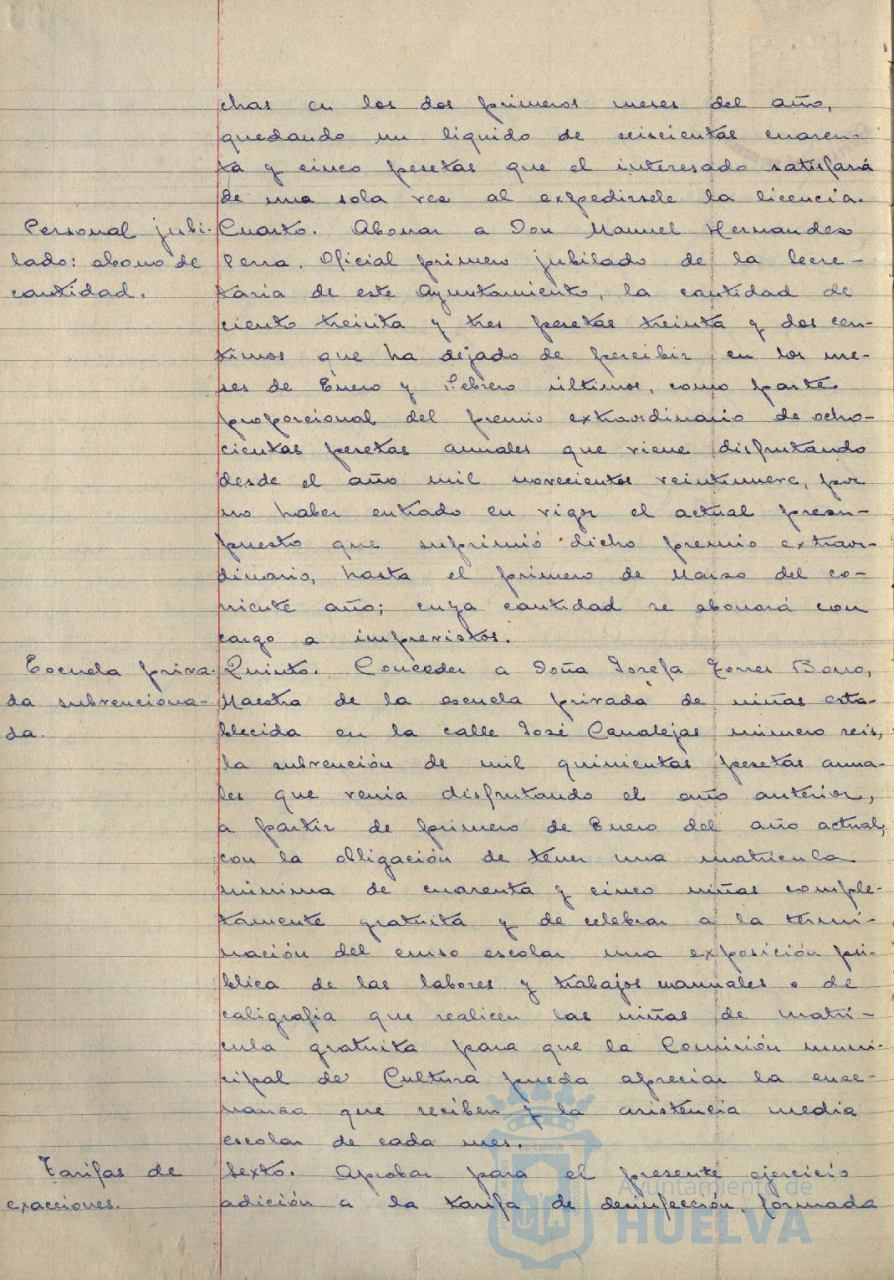 chas en los dos primeros meses del año,
quedando un liquido de seiscientas cuaren-
ta y cinco pesetas que el interesado satisfará
de una sola vez al expedirsele la licencia.
Personal jubi-
lado: abono de
cantidad.
Cuarto. Abonar a Don Manuel Hernandez
Perra, Oficial primero jubilado de la Secre-
taria de este Ayuntamiento, la cantidad de
ciento treinta y tres pesetas treinta y dos cen-
timos que ha dejado de percibir en los me-
ses de Enero y Febrero últimos, como parte
proporcional del premio extraordinario de ocho-
cientas pesetas anuales que viene disfrutando
desde el año mil novecientos veintinueve, por
no haber entrado en vigor el actual presu-
puesto que suprimió dicho premio extraor-
dinario, hasta el primero de Marzo del co-
rriente año; cuya cantidad se abonará con
cargo a imprevistos.
Escuela priva-
da subvenciona-
da.
Quinto. Conceder a Doña Josefa Torres Bono,
Maestra de la escuela privada de niñas esta-
blecida en la calle José Canalejas número seis,
la subvención de mil quinientas pesetas anua-
les que venia disfrutando el año anterior,
a partir de primero de Enero del año actual,
con la obligación de tener una matricula
minima de cuarenta y cinco niñas comple-
tamente gratuita y de celebrar a la termi-
nación del curso escolar una exposición pú-
blica de las labores y trabajos manuales o de
caligrafia que realicen las niñas de matrí-
cula gratuita para que la Comisión muni-
cipal de Cultura pueda apreciar la ense-
nanza que reciben y la asistencia media
escolar de cada mes.
Tarifas de
exacciones.
Sexto. Aprobar para el presente ejercicio
adición a la tarifa de desinfección, formada
Ayuntamiento de
HUELVA